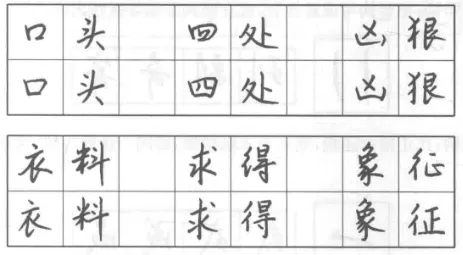 口头 四处 凶狠
口头 四处 凶狠
衣料 求得 象征
衣料 求得 象征